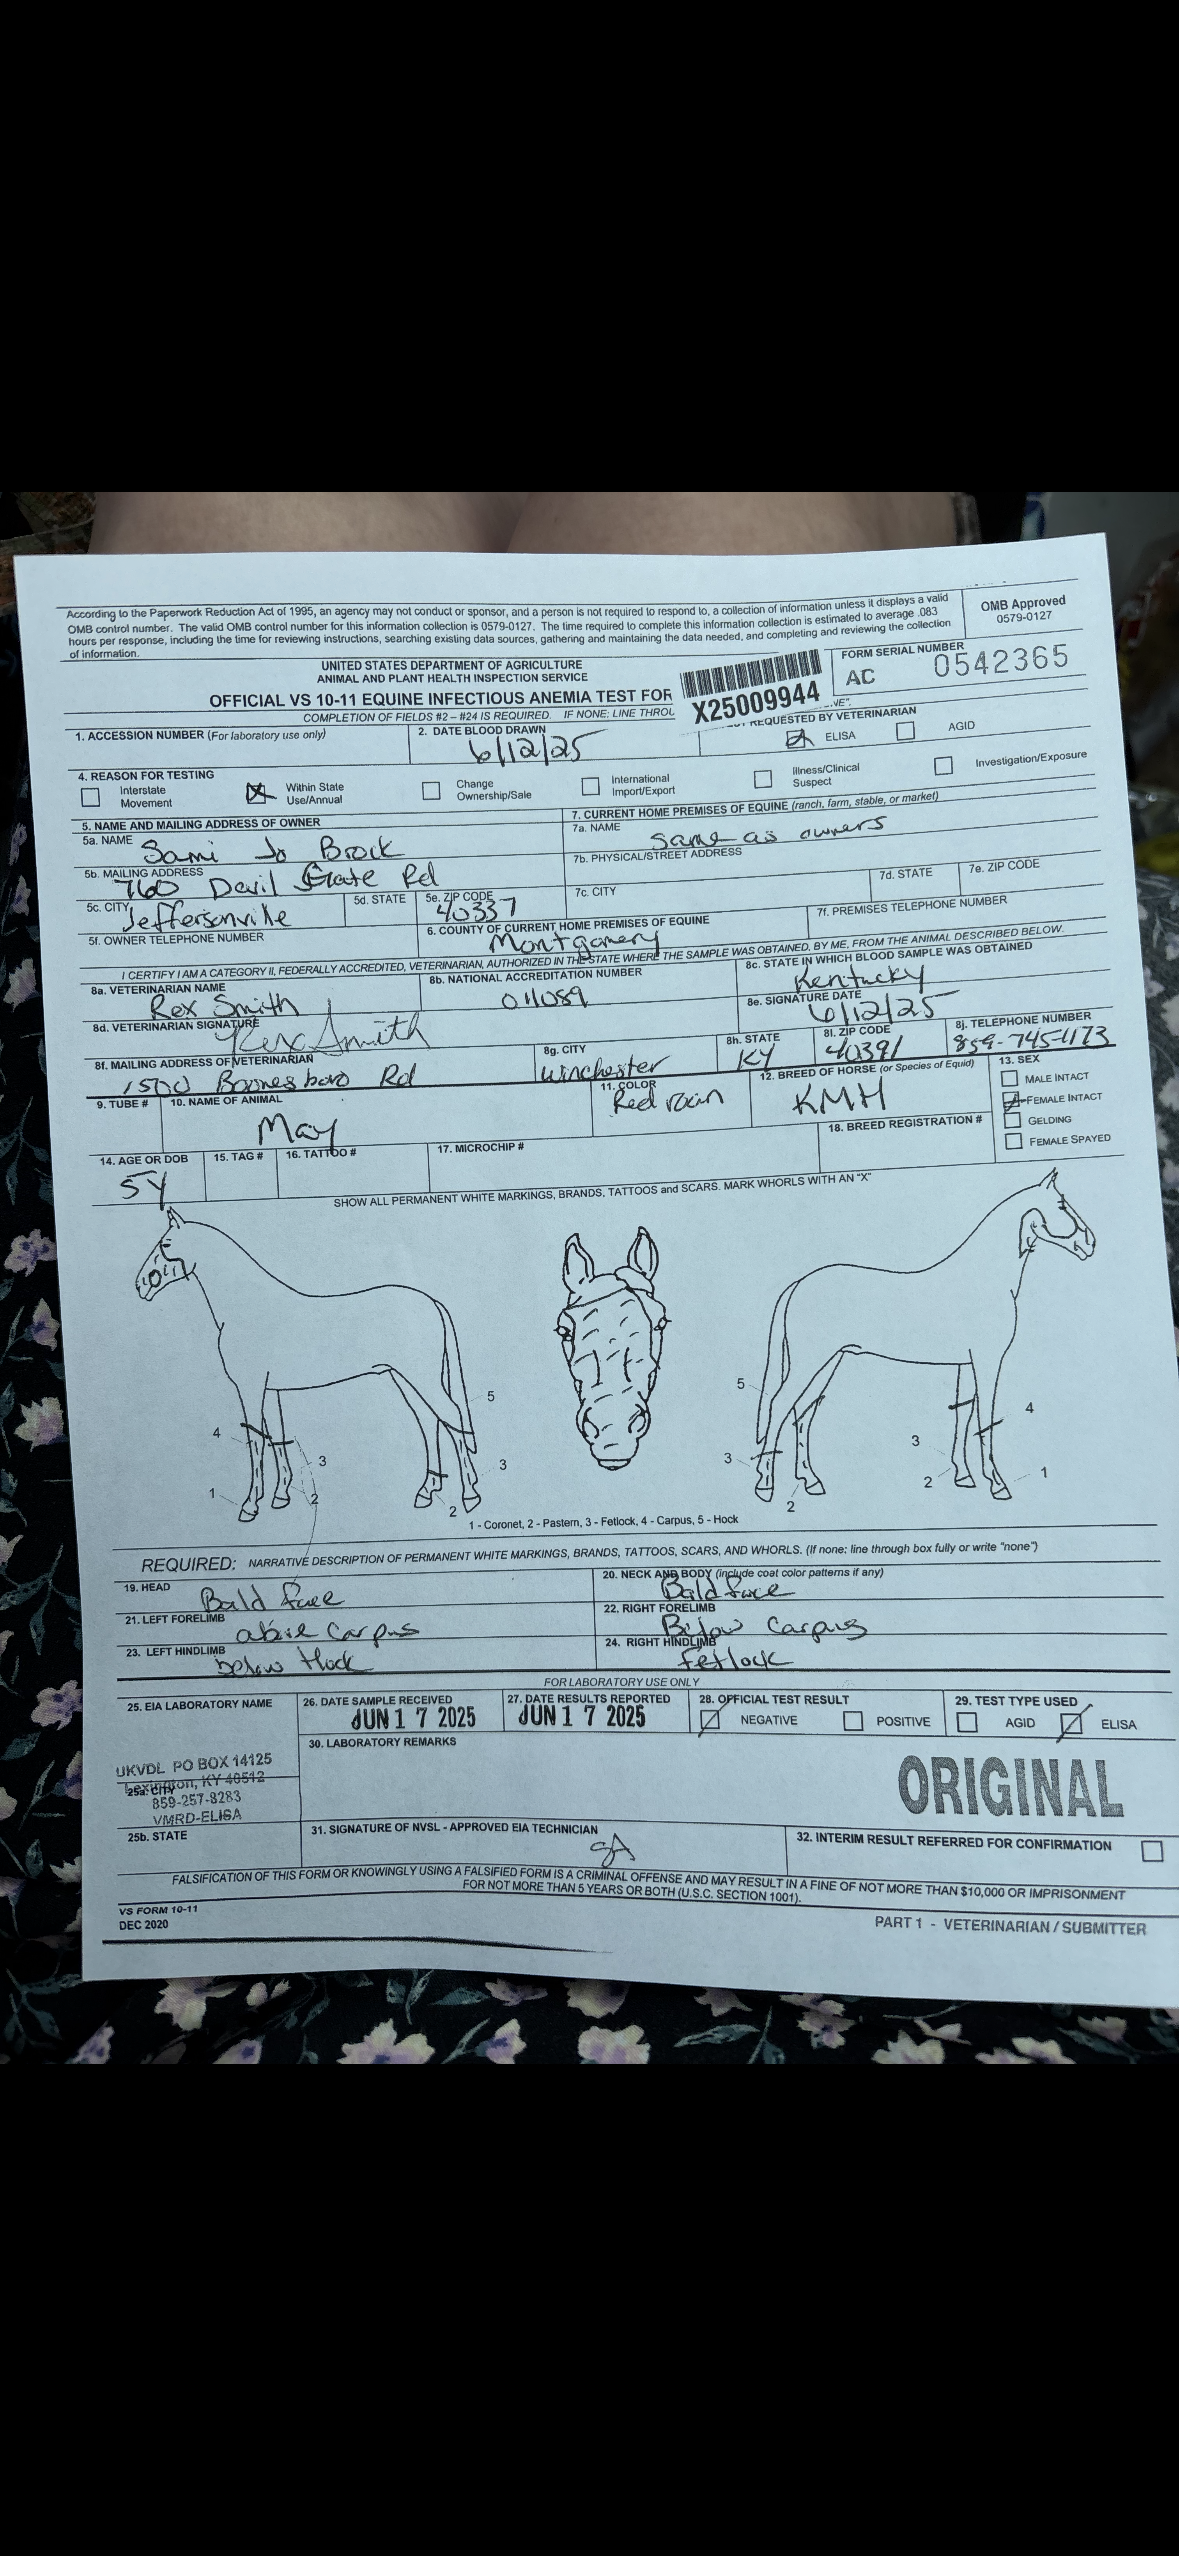 According to the Paperwork Reduction Act of 1995, an agency may not conduct or sponsor, and a person is not required to respond to, a collection of information unless it displays a valid
OMB control number. The valid OMB control number for this information collection is 0579-0127. The time required to complete this information collection is estimated to average .083
hours per response, including the time for reviewing instructions, searching existing data sources, gathering and maintaining the data needed, and completing and reviewing the collection
of information.
OMB Approved
0579-0127
UNITED STATES DEPARTMENT OF AGRICULTURE
ANIMAL AND PLANT HEALTH INSPECTION SERVICE
OFFICIAL VS 10-11 EQUINE INFECTIOUS ANEMIA TEST FOR
COMPLETION OF FIELDS #2 – #24 IS REQUIRED. IF NONE: LINE THROU
X25009944
FORM SERIAL NUMBER
AC 0542365
1. ACCESSION NUMBER (For laboratory use only)
2. DATE BLOOD DRAWN
6/12/25
REQUESTED BY VETERINARIAN
ELISA
AGID
4. REASON FOR TESTING
Interstate Movement
Within State Use/Annual
Change Ownership/Sale
International Import/Export
Illness/Clinical Suspect
Investigation/Exposure
5. NAME AND MAILING ADDRESS OF OWNER
7. CURRENT HOME PREMISES OF EQUINE (ranch, farm, stable, or market)
5a. NAME
Sami Jo Brock
7a. NAME
same as owners
5b. MAILING ADDRESS
760 Devil Gate Rd
7b. PHYSICAL/STREET ADDRESS
5c. CITY
Jeffersonville
5d. STATE
5e. ZIP CODE
40337
7c. CITY
7d. STATE
7e. ZIP CODE
5f. OWNER TELEPHONE NUMBER
6. COUNTY OF CURRENT HOME PREMISES OF EQUINE
Montgomery
7f. PREMISES TELEPHONE NUMBER
I CERTIFY I AM A CATEGORY II, FEDERALLY ACCREDITED, VETERINARIAN, AUTHORIZED IN THE STATE WHERE THE SAMPLE WAS OBTAINED, BY ME, FROM THE ANIMAL DESCRIBED BELOW.
8a. VETERINARIAN NAME
Rex Smith
8b. NATIONAL ACCREDITATION NUMBER
011089
8c. STATE IN WHICH BLOOD SAMPLE WAS OBTAINED
Kentucky
8d. VETERINARIAN SIGNATURE
Rex Smith
8e. SIGNATURE DATE
6/12/25
8f. MAILING ADDRESS OF VETERINARIAN
1500 Boonesboro Rd
8g. CITY
Winchester
8h. STATE
KY
8I. ZIP CODE
40391
8j. TELEPHONE NUMBER
859-745-1173
9. TUBE #
10. NAME OF ANIMAL
May
11. COLOR
Red roan
12. BREED OF HORSE (or Species of Equid)
KMH
13. SEX
MALE INTACT
FEMALE INTACT
GELDING
FEMALE SPAYED
14. AGE OR DOB
5Y
15. TAG #
16. TATTOO #
17. MICROCHIP #
18. BREED REGISTRATION #
SHOW ALL PERMANENT WHITE MARKINGS, BRANDS, TATTOOS and SCARS. MARK WHORLS WITH AN "X"
4
1
3
2
5
3
2
5
3
2
4
3
2
1
1 - Coronet, 2 - Pastern, 3 - Fetlock, 4 - Carpus, 5 - Hock
REQUIRED: NARRATIVE DESCRIPTION OF PERMANENT WHITE MARKINGS, BRANDS, TATTOOS, SCARS, AND WHORLS. (If none: line through box fully or write "none")
19. HEAD
Bald face
20. NECK AND BODY (include coat color patterns if any)
Bald face
21. LEFT FORELIMB
above carpus
22. RIGHT FORELIMB
Below Carpus
23. LEFT HINDLIMB
below Hock
24. RIGHT HINDLIMB
fetlock
FOR LABORATORY USE ONLY
25. EIA LABORATORY NAME
UKVDL PO BOX 14125
Lexington, KY 40512
25a. CITY
859-257-8283
VMRD-ELISA
25b. STATE
26. DATE SAMPLE RECEIVED
JUN 17 2025
27. DATE RESULTS REPORTED
JUN 17 2025
28. OFFICIAL TEST RESULT
NEGATIVE
POSITIVE
29. TEST TYPE USED
AGID
ELISA
30. LABORATORY REMARKS
ORIGINAL
31. SIGNATURE OF NVSL - APPROVED EIA TECHNICIAN
SA
32. INTERIM RESULT REFERRED FOR CONFIRMATION
FALSIFICATION OF THIS FORM OR KNOWINGLY USING A FALSIFIED FORM IS A CRIMINAL OFFENSE AND MAY RESULT IN A FINE OF NOT MORE THAN $10,000 OR IMPRISONMENT
FOR NOT MORE THAN 5 YEARS OR BOTH (U.S.C. SECTION 1001).
VS FORM 10-11
DEC 2020
PART 1 - VETERINARIAN / SUBMITTER